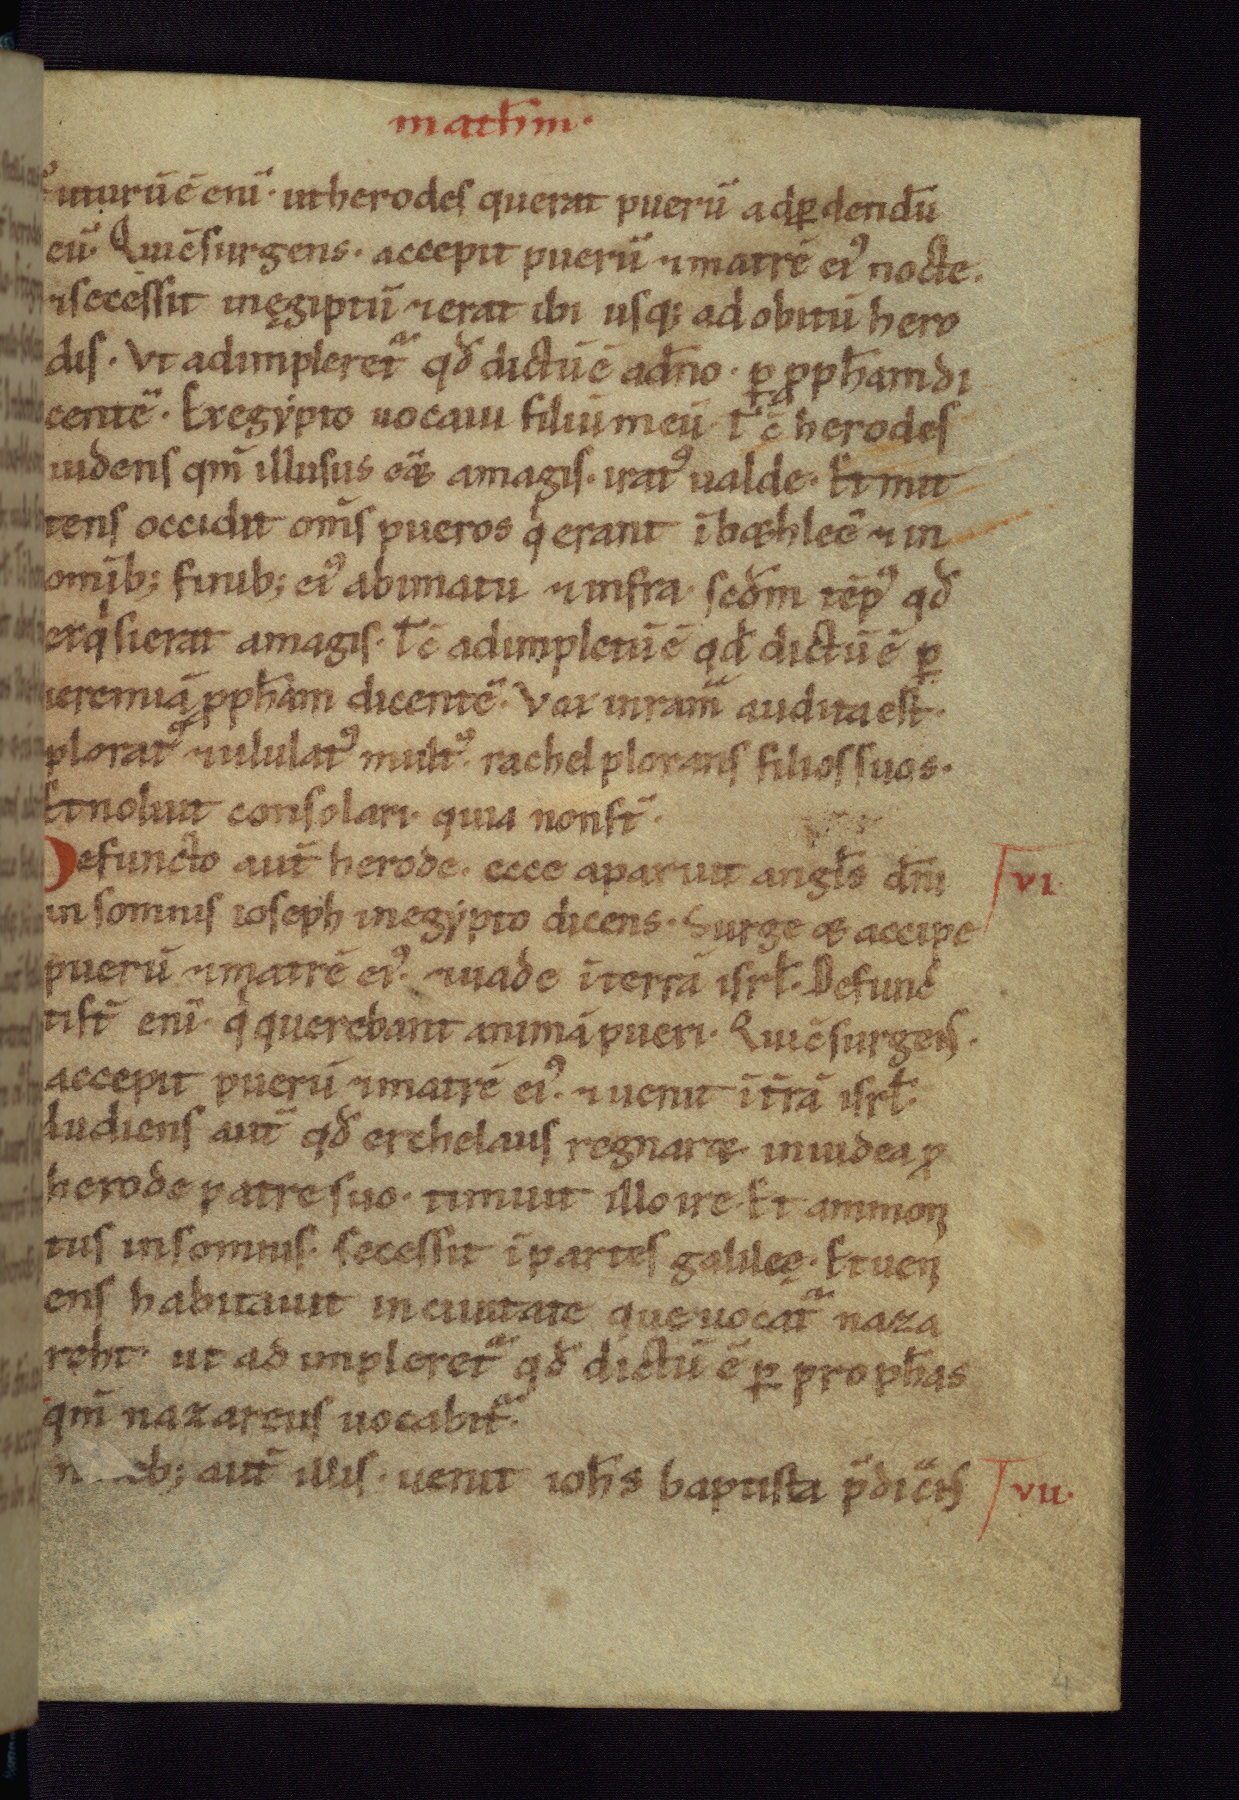 math̄m·
Futurū ē enī· ut herodes querat puerū ad ꝑdendū
eū· Qui c̄surgens· accepit puerū ⁊ matrē eiꝰ nocte·
⁊ secessit in ęgiptū ⁊ erat ibi usq; ad obitū hero
dis· Vt adimpleret᷑ qđ dictū ē a dn̄o· ꝑ ꝓph̄am di
centē· Ex egẏpto uocaui filiū meū· Tc̄ herodes
uidens qm̄ illusus eēt a magis· iratꝰ ualde· Et mit
tens occidit om̄s pueros qͥ erant ī bethleē ⁊ in
omīb; finib; eiꝰ a bimatu ⁊ infra· scđm tēpꝰ qđ
exqͥsierat a magis· Tc̄ adimpletū ē qđ dictū ē ꝑ
ieremiā ꝓph̄am dicentē· Vox in ram̄ audita est·
ploratꝰ ⁊ ululatꝰ multꝰ· rachel plorans filios suos·
Et noluit consolari· quia non st̄·
Defuncto aut̄ herode· ecce aparuit angl̄s dn̄i
vi·
in somnis ioseph in egẏpto dicens· Surge et accipe
puerū ⁊ matrē eiꝰ· ⁊ uade ī terrā isrl̄· Defunc
ti st̄ enī· qͥ querebant animā pueri· Qui c̄surgens·
accepit puerū ⁊ matrē eiꝰ· ⁊ uenit ī t̄rā isrl̄·
Audiens aut̄ qđ erchelaus regnaret· in iudea ꝓ
herode patre suo· timuit illo ire· Et ammoni
tus in somnis· secessit ī partes galileę· Et ueni
ens habitauit in ciuitate que uocat᷑ naza
reht· ut ad inpleret᷑ qđ dictū ē ꝑ proph̄as
qm̄ nazareus uocabit᷑·
aut̄ illis· uenit ioh̄s baptista p̄dicās
vii·
4